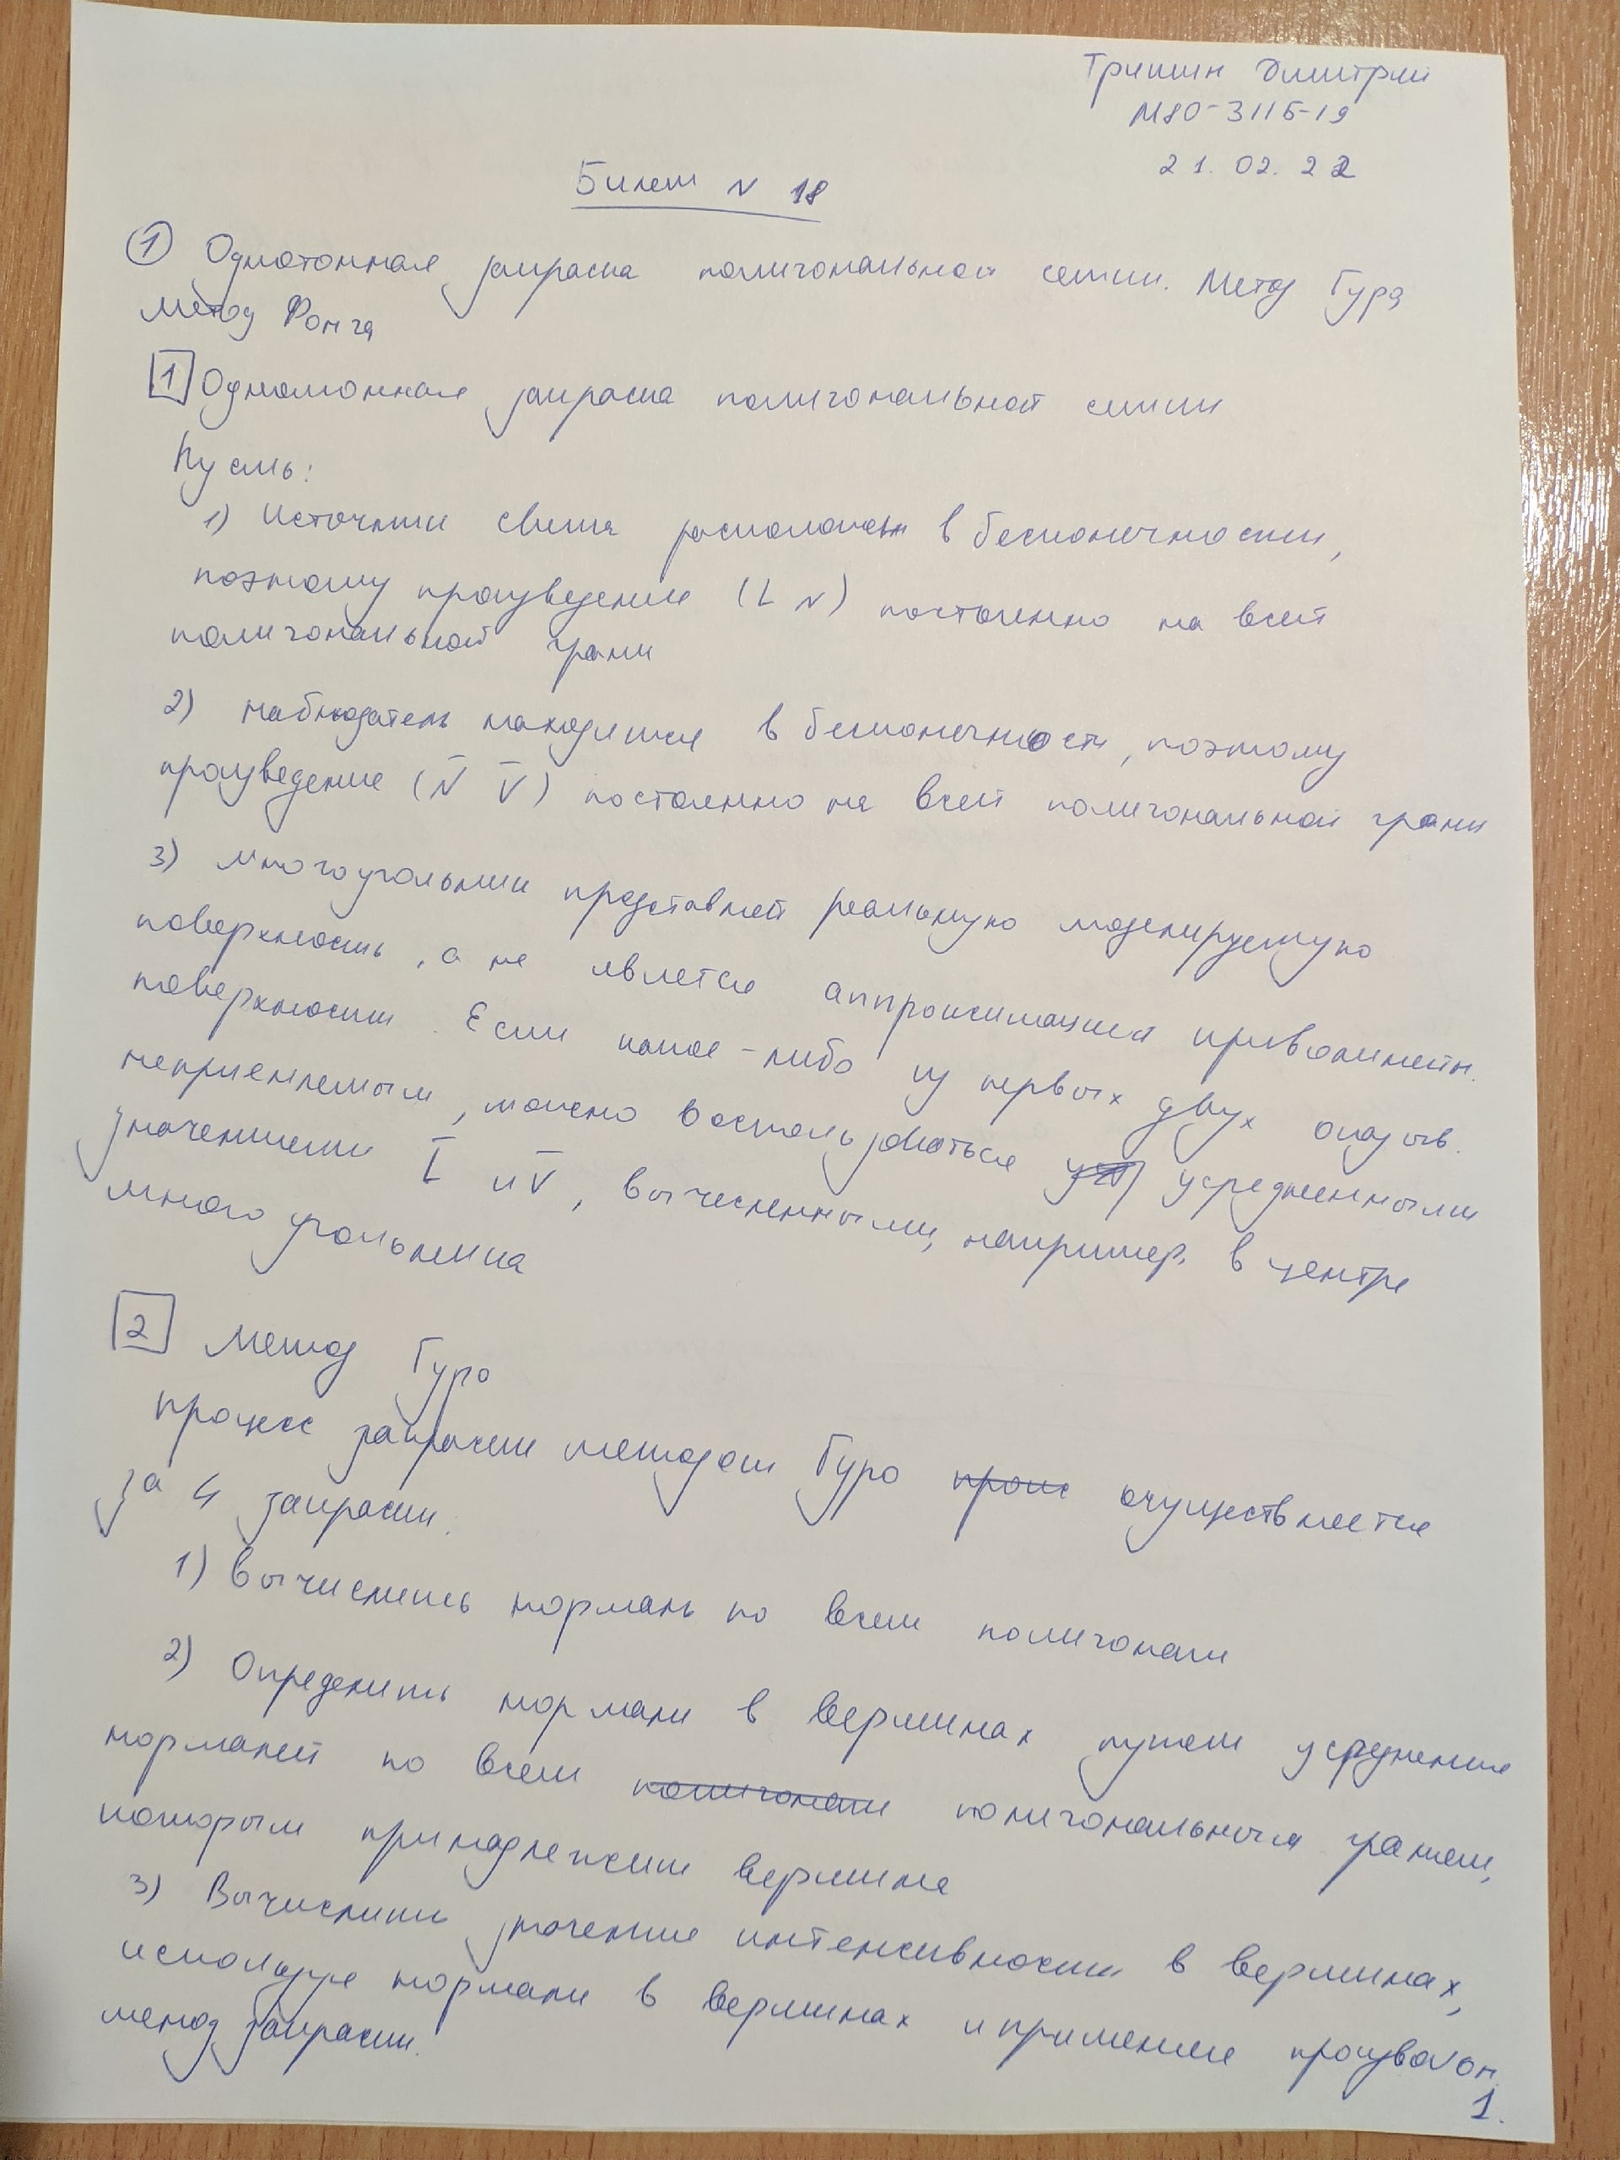 Тришин Дмитрий
М80-311Б-19
21.02.22
Билет N 18
① Однотонная закраска полигональной сетки. Метод Гуро
Метод Фонга
1 Однотонная закраска полигональной сетки
Пусть:
1) Источники света расположен в бесконечности,
поэтому произведение (L N) постоянно на всей
полигональной грани
2) наблюдатель находится в бесконечности, поэтому
произведение (N̄ V̄) постоянно на всей полигональной грани
3) многоугольник представляет реальную моделируемую
поверхность, а не явлется аппроксимацией криволинейн.
поверхности. Если какое-либо из первых двух оказыв.
неприемлемым, можно воспользоваться усредненными
значениями L̄ и V̄, вычесленными, например, в центре
многоугольника
2 Метод Гуро
процесс закраски методом Гуро осуществляется
за 4 закраски.
1) Вычислить нормаль по всем полигонам
2) Определить нормали в вершинах путем усреднения
нормалей по всем полигональным граням,
которым принадлежит вершина
3) Вычислить значение интенсивности в вершинах,
используя нормали в вершинах и применяя произвольн.
метод закраски.
1.